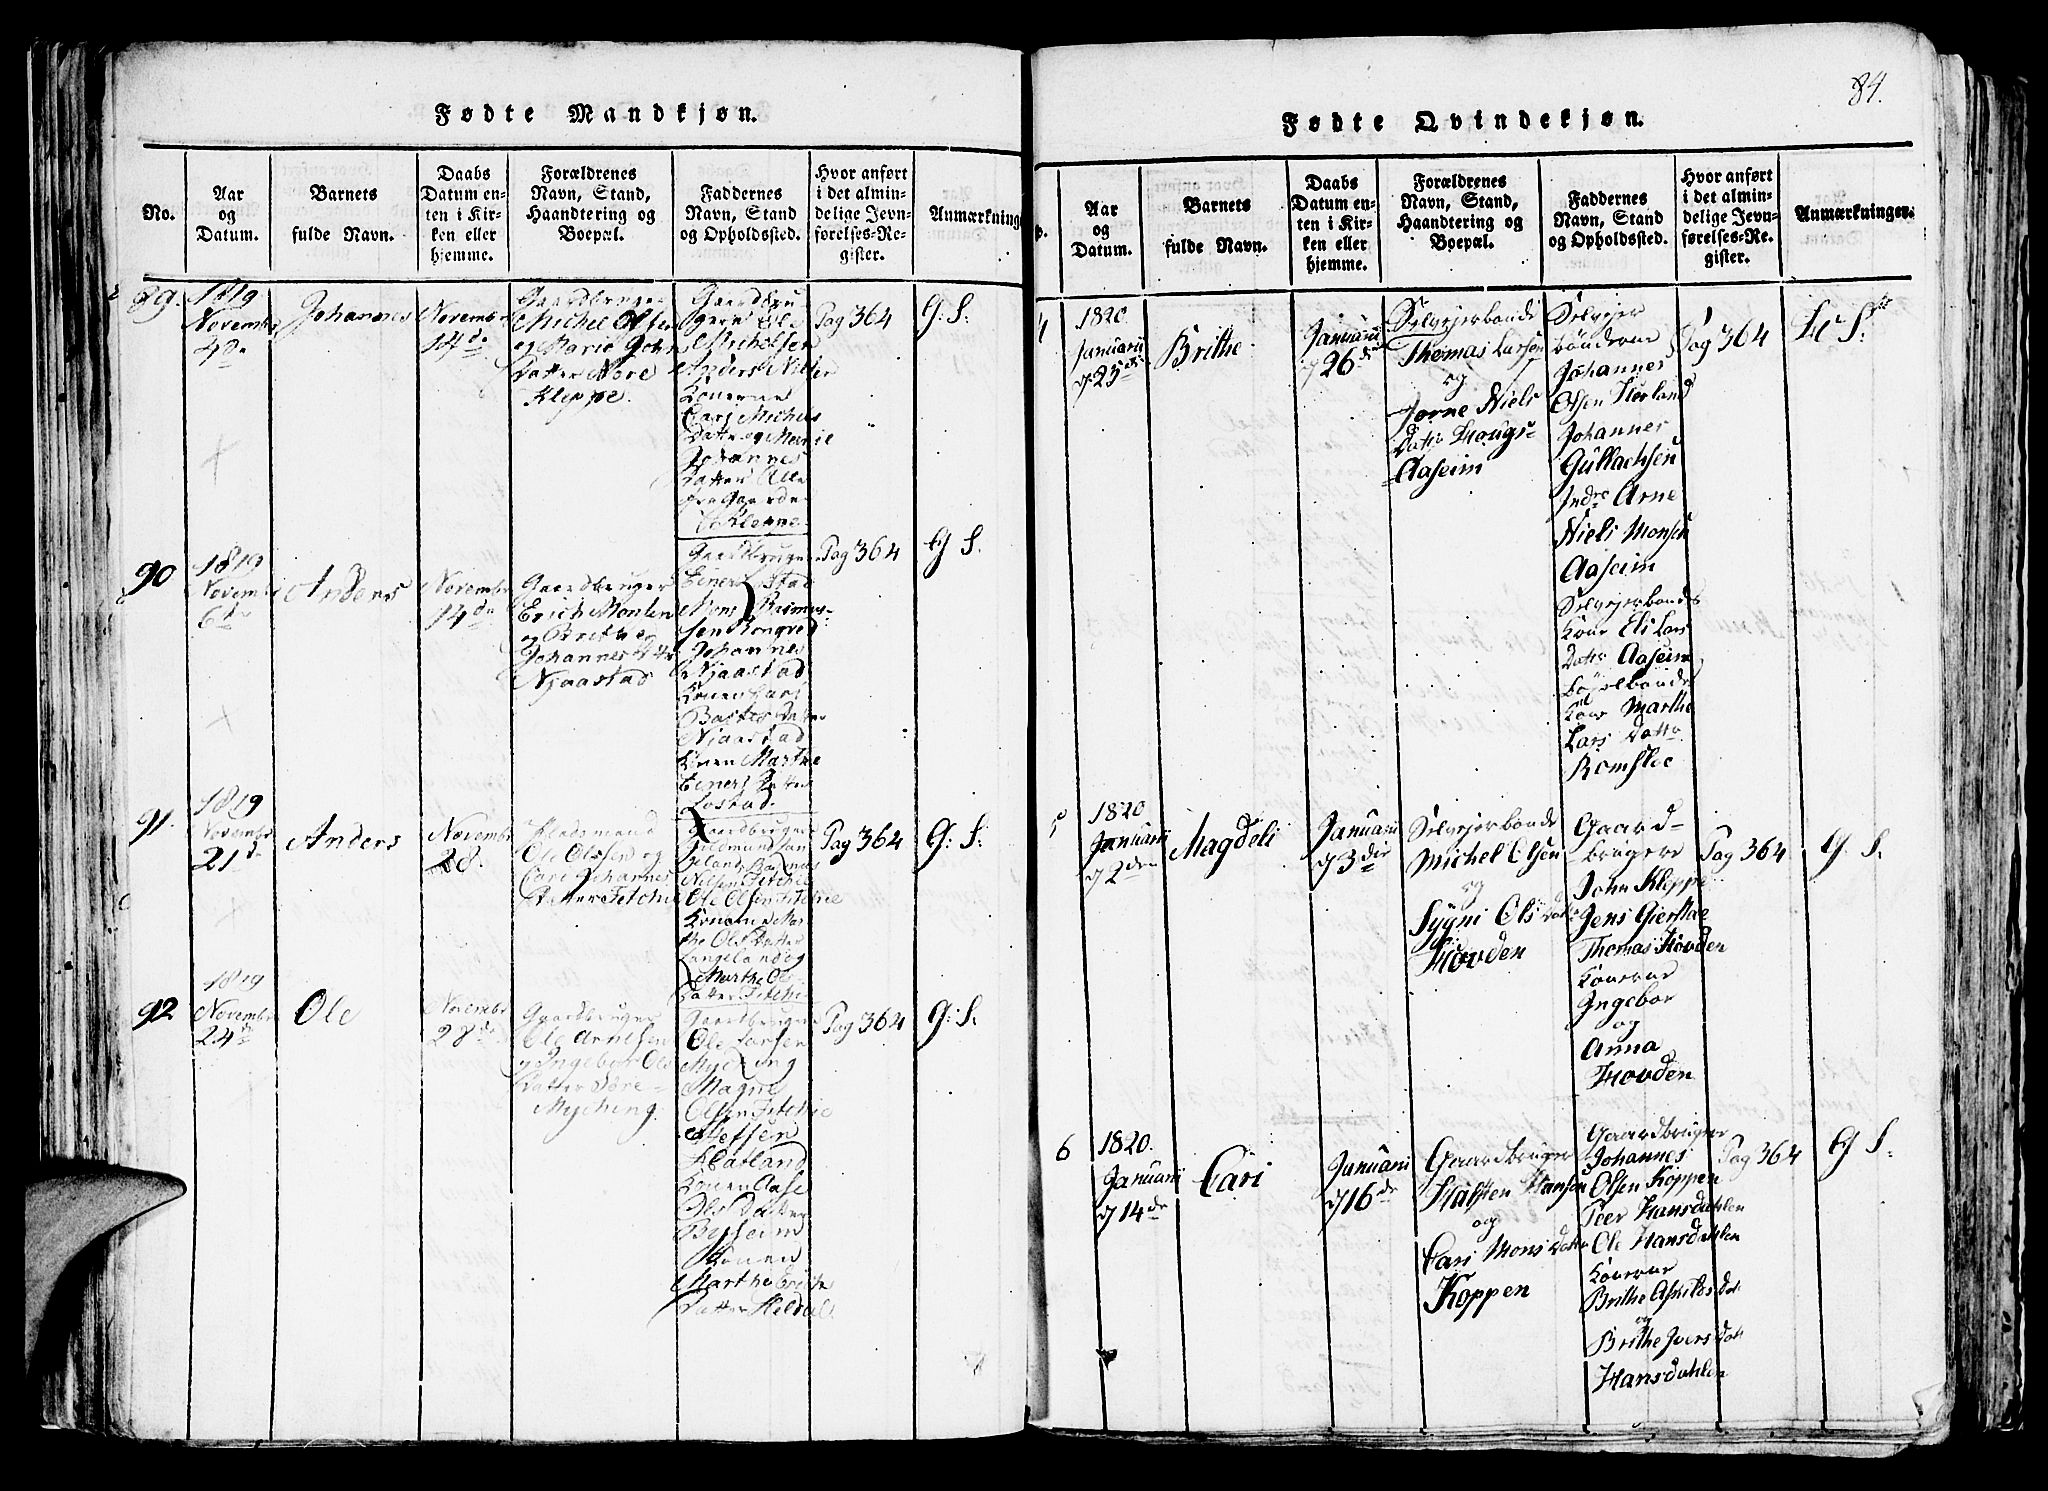 Fødte Mandkjøn.
No.
Aar
og
Datum.
Barnets
fulde Navn.
Daabs
Datum en-
ten i Kir-
ken eller
hjemme.
Forældrenes
Navn, Stand,
Haandtering og
Boepæl.
Faddernes
Navn, Stand
og Opholdssted.
Hvor anført
i det almin-
delige Jevn-
førelses-Re-
gister.
Anmærkning
89.
1819
Novembr
4de
Johannes
Novembr
14de
Gaardbruger
Michel Olsen
og Marie Johns
Datter Nore
Kleppe.
Gaardbru
gern Ole
Michelsen
Anders Nilsen
Konerne
Cari Michels
Datter og Marie
Johannes
Datter Alle
fra Gaarden
Kleppe
Pag 364
G. S.
90
1819
Novembr
6te
Anders
Novembr
14de
Gaardbruger
Erich Monsen
og Brithe
Johannes Dtr
Njaastad
Gaardbruger
Einer
Mons Rasmus-
sen
Johannes
Njaastad
Konen Cari
Njaastad
Konen Marthe
Einers Datter
Lostad.
Pag 364
G S.
91.
1819
Novembr
21de
Anders
Novembr
28.
Huusmand
Ole Olssen og
Cari Johannes
Datter Fitchie
Gaardbruger
Nilsen Fitchie
Ole Olsen Fitchie
Konerne Mar-
the Ols Datter
Langeland og
Marthe Ols
Datter Fitchie
Pag 364
G: S.
92
1819
Novembr
24de
Ole
Novembr
28de
Gaardbruger
Ole Arnesen
og Ingebor Ols
Datter Søre-
Myching
Gaardbruger
Ole Larsen
Myching
Magne
Olsen Fitchie
Hatland
Konen Aase
Ols Datter
Konen
Marthe Erichs
Datter Heldal
Pag 364
G: S.
84.
Fødte Qvindekjøn.
Aar
og
Datum.
Barnets
fulde Navn.
Daabs
Datum en-
ten i Kir-
ken eller
hjemme.
Forældrenes
Navn, Stand,
Haandtering og
Boepæl.
Faddernes
Navn, Stand
og Opholdssted.
Hvor anført
i det almin-
delige Jevn-
førelses-Re-
gister.
Anmærkninger.
4
1820.
Januarii
d 23de
Brithe
Januarii
d 26de
Selvejerbonde
Thomas Larsen
og
Jorne Niels
Datter Hougs-
Aaseim
Selvejer
bønderne
Johannes
Olsen Hørland
Johannes
Gullachsen
Indre Arne
Niels Monsen
Aaseim
Selvejerbondes
Kone Eli Lars
Datter Aaseim
Kone Marthe
Lars Datter
Romslee
Pag 364
5
1820
Januarii
d 2den
Magdeli
Januarii
d 3die
Selvejerbonde
Michel Olsen
og
Sygni Ols Datter
Hovden
Gaard-
brugere
John Kleppe
Jens Gierstae
Thomas Hovden
Konerne
Ingebor
og
Anna
Hovden
Pag 364
G. S.
6
1820.
Januarii
d 14de
Cari
Januarii
d 16de
Gaardbruger
Halsten Hansen
og
Cari Mons Datter
Koppen
Gaardbruger
Johannes
Olsen Koppen
Peer Hansdahlen
Ole Hansdahlen
Konerne
Brithe Askilds dat
og
Brithe Ivers Datt
Hansdahlen
Pag 364
G S.